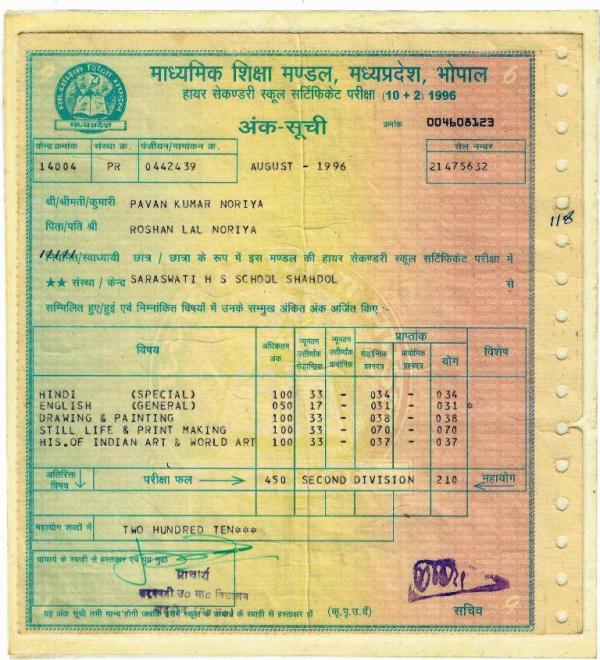 माध्यमिक शिक्षा मण्डल, मध्यप्रदेश, भोपाल
हायर सेकण्डरी स्कूल सर्टिफिकेट परीक्षा (10 + 2) 1996
माध्यमिक शिक्षा मण्डल
मध्यप्रदेश
अंक-सूची क्रमांक 004608123
केन्द्र क्रमांक संस्था क्र. पंजीयन/नामांकन क्र. रोल नम्बर
14004 PR 0442439 AUGUST - 1996 21475632
श्री/श्रीमती/कुमारी PAVAN KUMAR NORIYA
पिता/पति श्री ROSHAN LAL NORIYA
118
/स्वाध्यायी छात्र / छात्रा के रूप में इस मण्डल की हायर सेकण्डरी स्कूल सर्टिफिकेट परीक्षा में
★★ संस्था / केन्द्र SARASWATI H S SCHOOL SHAHDOL से
सम्मिलित हुए/हुई एवं निम्नांकित विषयों में उनके सम्मुख अंकित अंक अर्जित किए :-
विषय अधिकतम अंक न्यूनतम उत्तीर्णांक सैद्धान्तिक न्यूनतम उत्तीर्णांक प्रायोगिक प्राप्तांक विशेष
सैद्धान्तिक प्रश्नपत्र प्रायोगिक प्रश्नपत्र योग
HINDI (SPECIAL) 100 33 - 034 - 034
ENGLISH (GENERAL) 050 17 - 031 - 031 *
DRAWING & PAINTING 100 33 - 038 - 038
STILL LIFE & PRINT MAKING 100 33 - 070 - 070
HIS.OF INDIAN ART & WORLD ART 100 33 - 037 - 037
अतिरिक्त विषय परीक्षा फल 450 SECOND DIVISION 210 महायोग
महायोग शब्दों में TWO HUNDRED TEN***
प्राचार्य के स्याही से हस्ताक्षर एवं पद मुद्रा
प्राचार्य
उ० मा० विद्यालय
यह अंक सूची तभी मान्य होगी जबकि इसमें स्कूल के प्राचार्य के स्याही से हस्ताक्षर हों (कृ.पृ.उ.दें) सचिव